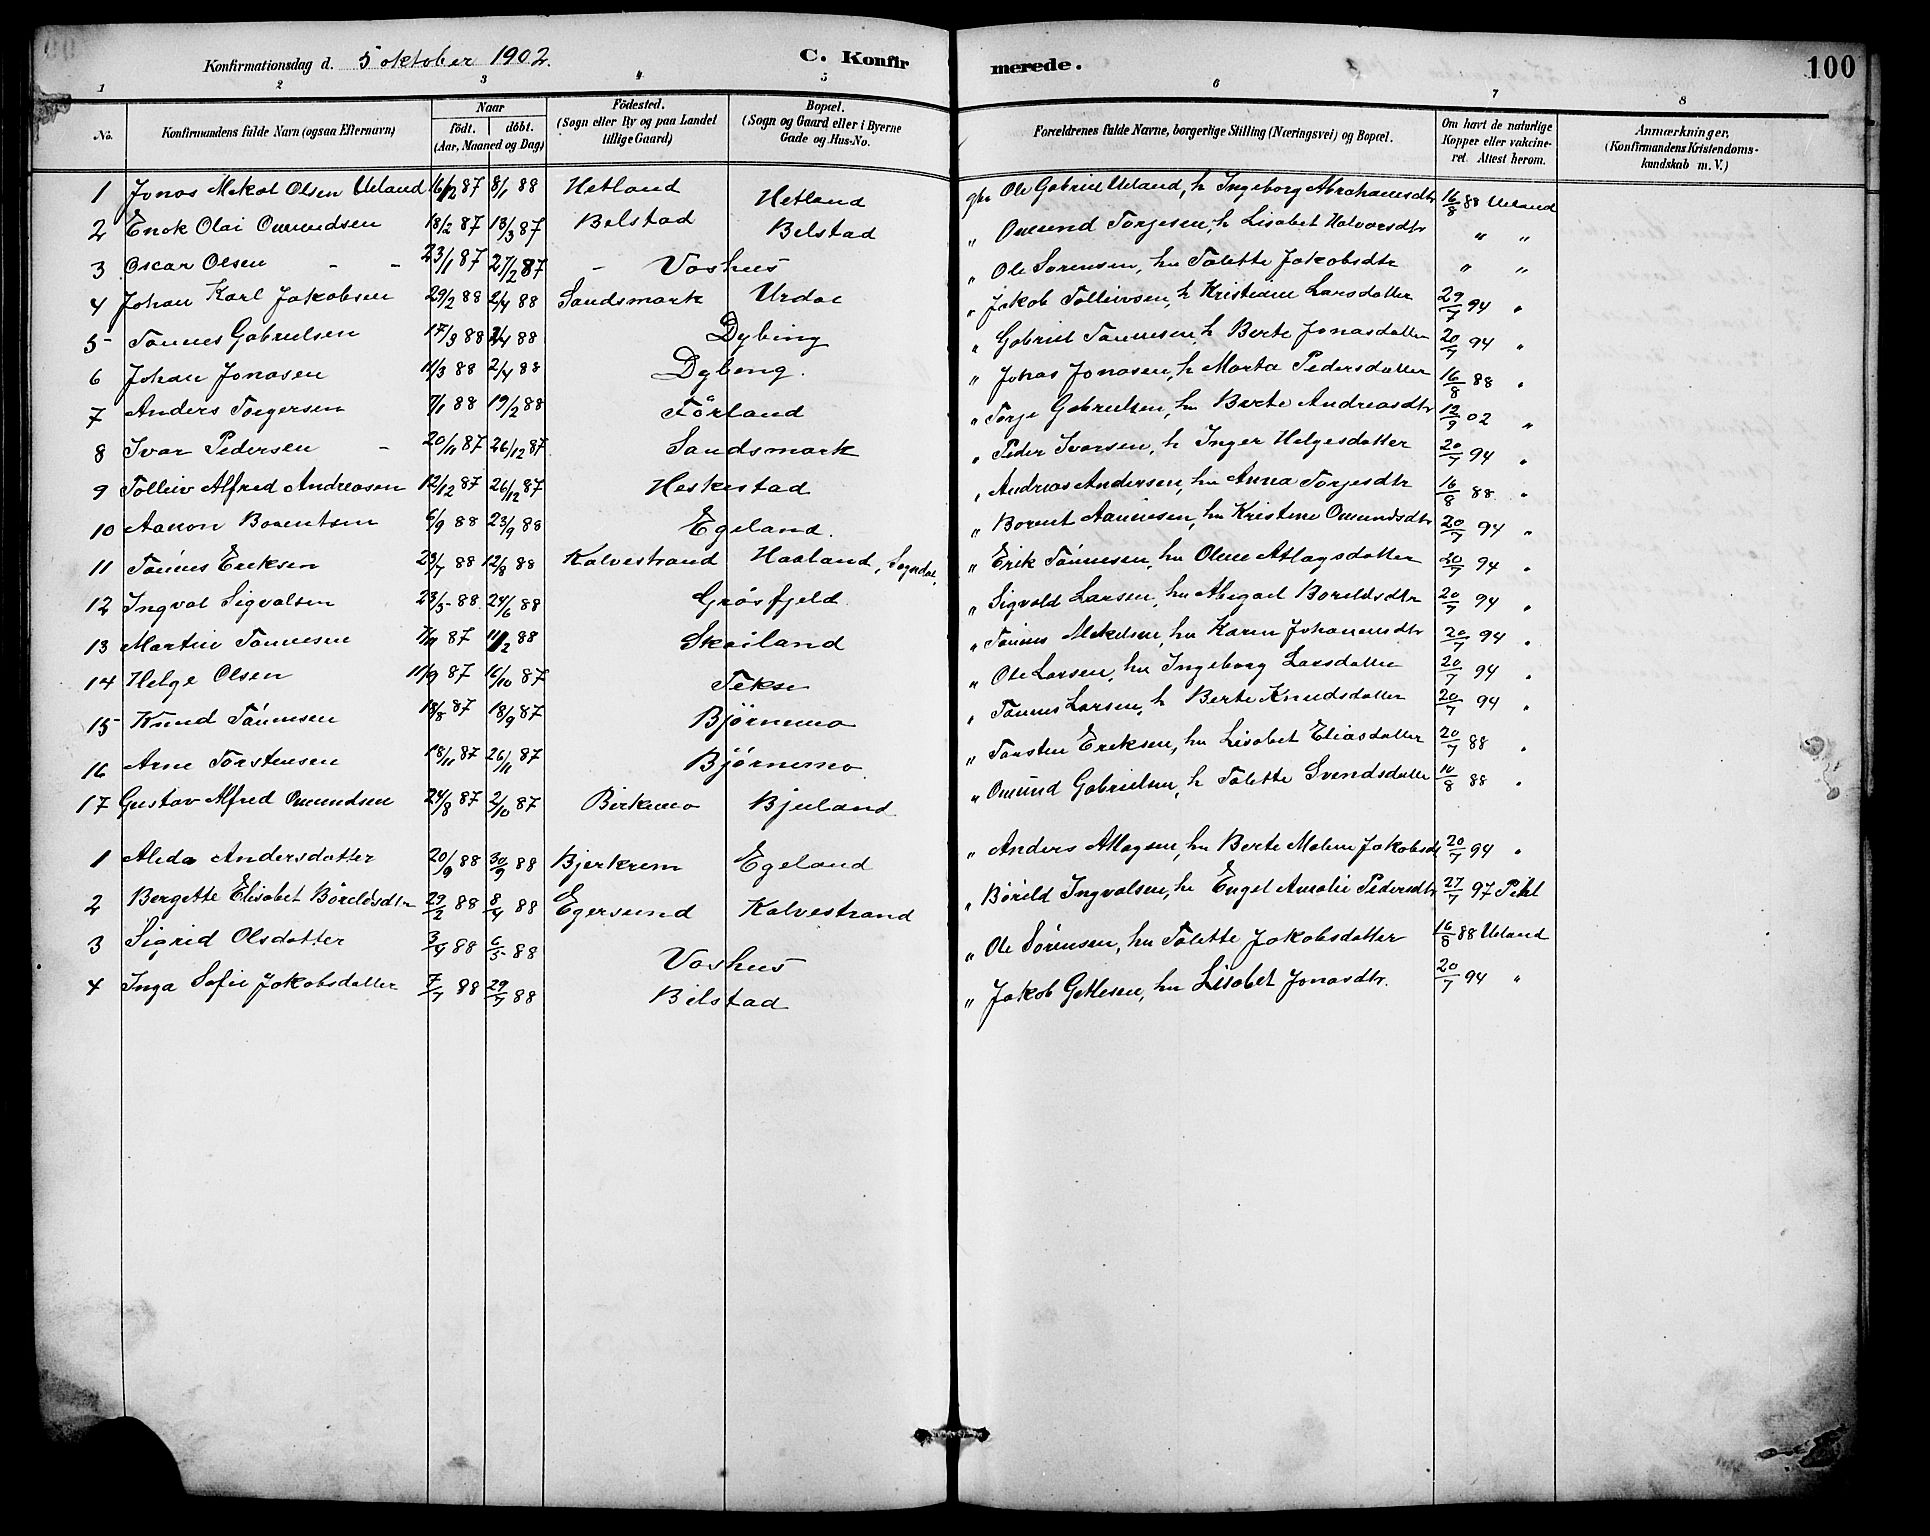 Konfirmationsdag d. 5 oktober 1902. C. Konfirmerede. 100
1 2 3 4 5 6 7 8
No. Konfirmandens fulde Navn (ogsaa Efternavn) Naar født. døbt. (Aar, Maaned og Dag) Fødested. (Sogn eller By og paa Landet tillige Gaard) Bopæl. (Sogn og Gaard eller i Byerne Gade og Hus-No. Forældrenes fulde Navne, borgerlige Stilling (Næringsvei) og Bopæl. Om havt de naturlige Kopper eller vakcineret. Attest herom. Anmærkninger. (Konfirmandens Kristendomskundskab m. V.)
1 Jonas Mekal Olsen Ueland 16/12 87 8/1 88 Hetland Hetland gbr Ole Gabriel Ueland, h Ingeborg Abrahamsdtr 16/8 88 Ueland
2 Enok Olai Omundsen 18/2 87 13/3 87 Bilstad Bilstad " Omund Torjesen, h Lisabet Halvorsdtr " "
3 Oscar Olsen - - 23/1 87 27/2 87 - Vashus " Ole Sørensen, hu Talette Jakobsdtr " "
4 Johan Karl Jakobsen 29/2 88 2/4 88 Sandsmark Urdal " Jakob Tolleivsen, h Kristine Larsdatter 29/7 94 "
5 Tønnes Gabrielsen 17/3 88 2/4 88 Dybing " Gabriel Tønnesen, h Berte Jonasdatter 20/7 94 "
6 Johan Jonasen 11/3 88 2/4 88 Dybing. " Jonas Jonasen, h Marta Pedersdatter 16/8 88 "
7 Anders Torgersen 7/1 88 19/2 88 Førland " Torje Gabrielsen, hu Berte Andreasdtr 12/9 02 "
8 Ivar Pedersen - 20/11 87 26/12 87 Sandsmark " Peder Ivarsen, h Inger Helgesdatter 20/7 94 "
9 Tolleiv Alfred Andreasen 12/12 87 26/12 87 Heskestad " Andreas Andersen, hu Anna Torjesdtr 16/8 88 "
10 Aanon Berentsen 6/9 88 23/9 88 Egeland. " Berent Aanonsen, hu Kristine Omundsdtr 20/7 94 "
11 Tønnes Eriksen 23/7 88 12/8 88 Kalvestrand Haaland, Sogndal. " Erik Tønnesen, hu Oline Atlagsdatter 20/7 94 "
12 Ingval Sigvalsen 23/5 88 24/6 88 Grøsfjeld " Sigvald Larsen, hu Abigael Borildsdtr 20/7 94 "
13 Martin Tønnesen 7/11 87 11/2 88 Skailand " Tønnes Mekelsen, hu Karen Johannesdtr 20/7 94 "
14 Helge Olsen 11/9 87 16/10 87 Tekse " Ole Larsen, hu Ingeborg Larsdatter 20/7 94 "
15 Knud Tønnesen 18/8 87 18/9 87 Bjørnemo " Tønnes Larsen, h Berte Knudsdatter 20/7 94 "
16 Arne Torstensen 18/11 87 26/11 87 Bjørnemo " Torsten Eriksen, hu Lisabet Eliasdatter 20/7 88 "
17 Gustav Alfred Omundsen 24/8 87 2/10 87 Birkemo Bjuland " Omund Gabrielsen, h Talette Svendsdatter 10/8 88 "
1 Aleda Andersdatter 20/9 88 30/9 88 Bjerkreim Egeland " Anders Atlagsen, hu Berte Malene Jakobsdtr 20/7 94 "
2 Bergette Elisabet Børeldsdtr 29/2 88 8/4 88 Egersund Kalvestrand " Børild Ingvalsen, hu Engel Amalie Pedersdtr 27/7 97 Pihl
3 Sigrid Olsdatter 3/4 88 6/5 88 Vashus " Ole Sørensen, hu Talette Jakobsdatter 16/8 88 Ueland
4 Inga Sofie Jakobsdatter 7/7 88 29/7 88 Bilstad " Jakob Getlesen, hu Lisabet Jonasdtr. 20/7 94 "